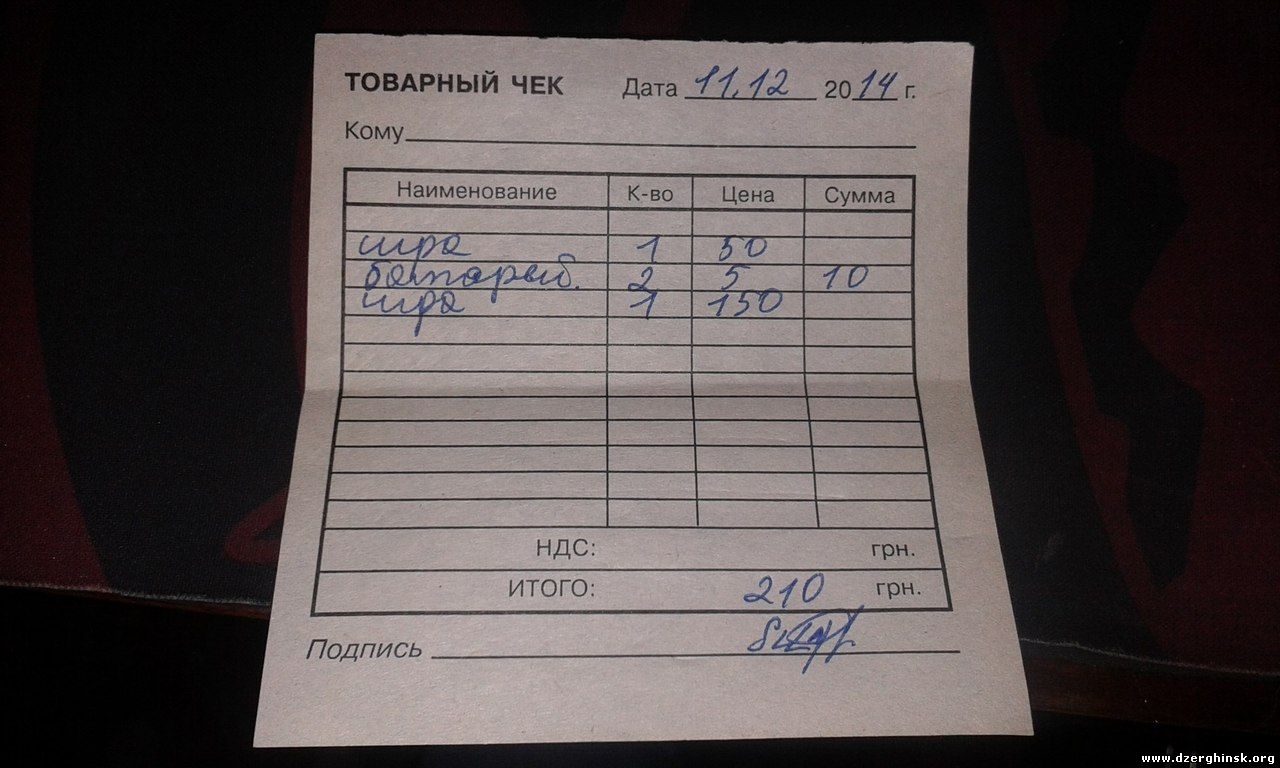 ТОВАРНЫЙ ЧЕК Дата 11.12 2014 г.
Кому
Наименование К-во Цена Сумма
игра 1 50
батарей. 2 5 10
игра 1 150
НДС: грн.
ИТОГО: 210 грн.
Подпись
www.dzerghinsk.org